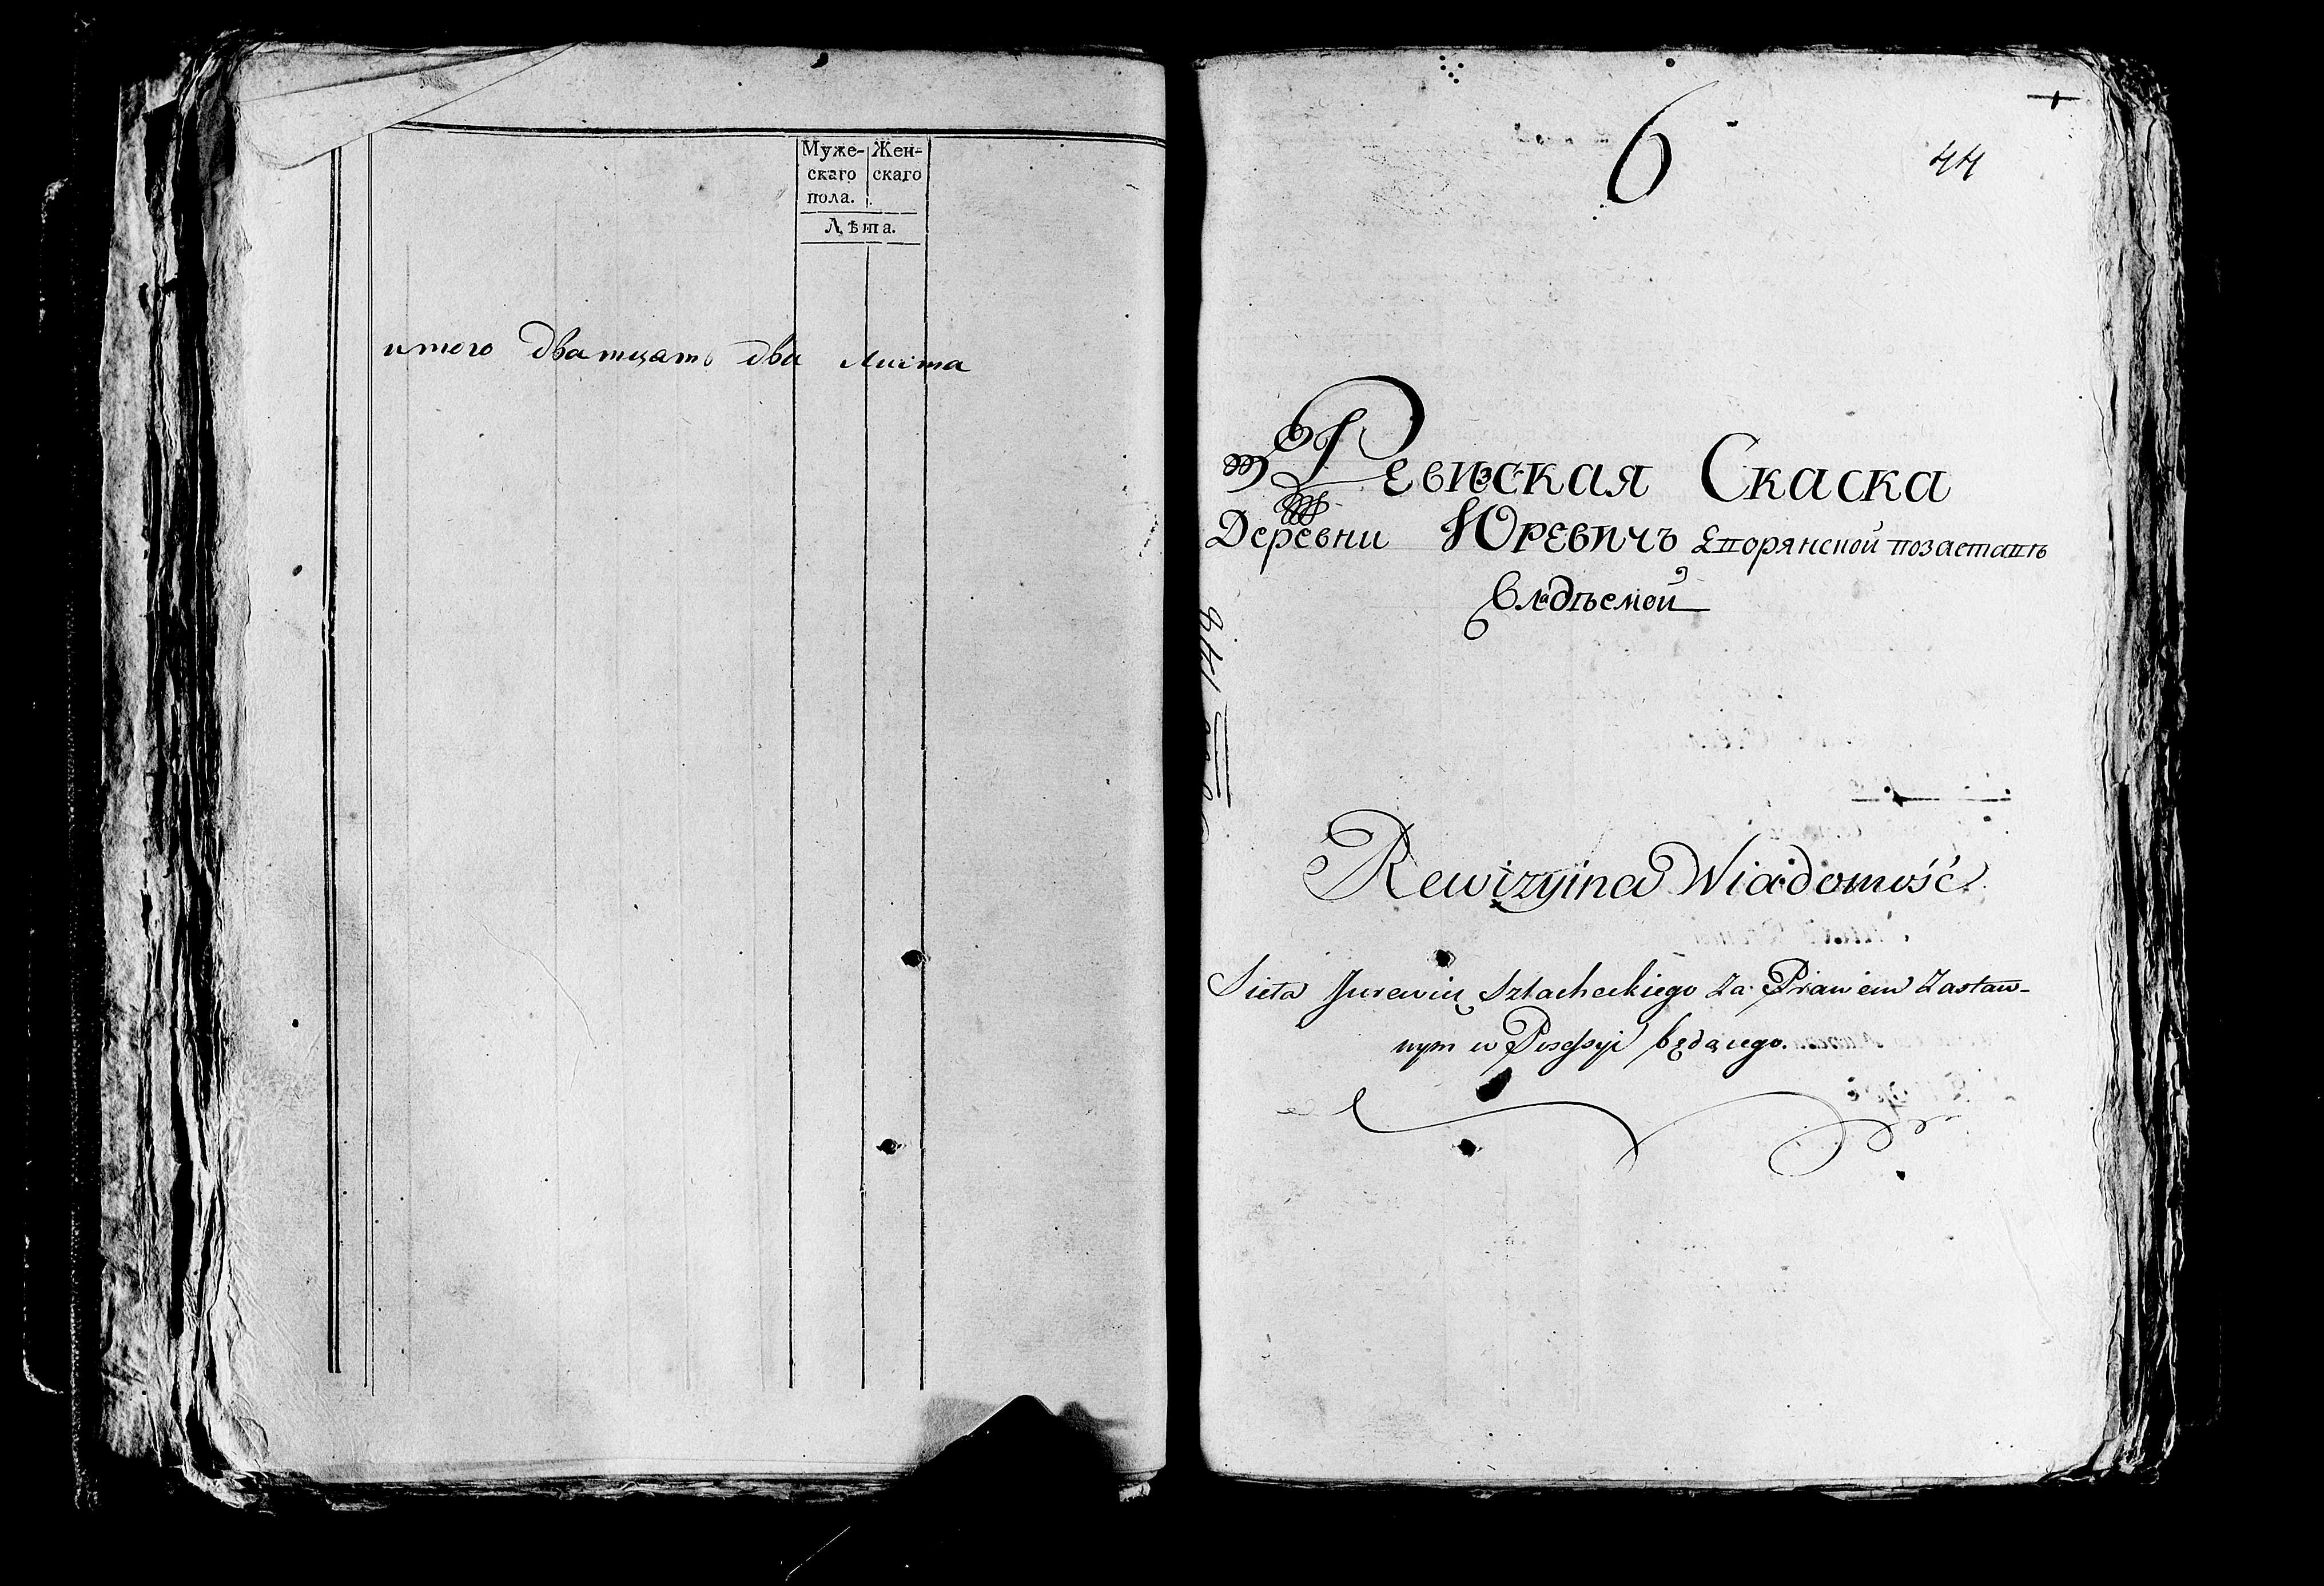 Муже- Жен-
скаго скаго
пола.
Лѣта.
итого дватцать два листа
6
44
Ревизская Скаска
Деревни Юревичъ
владѣемой
Rewizyina Wiadomość
Sioła Jurewicz Szlacheckiego Za Prawem Zastaw-
nym w Possessyi będącego.